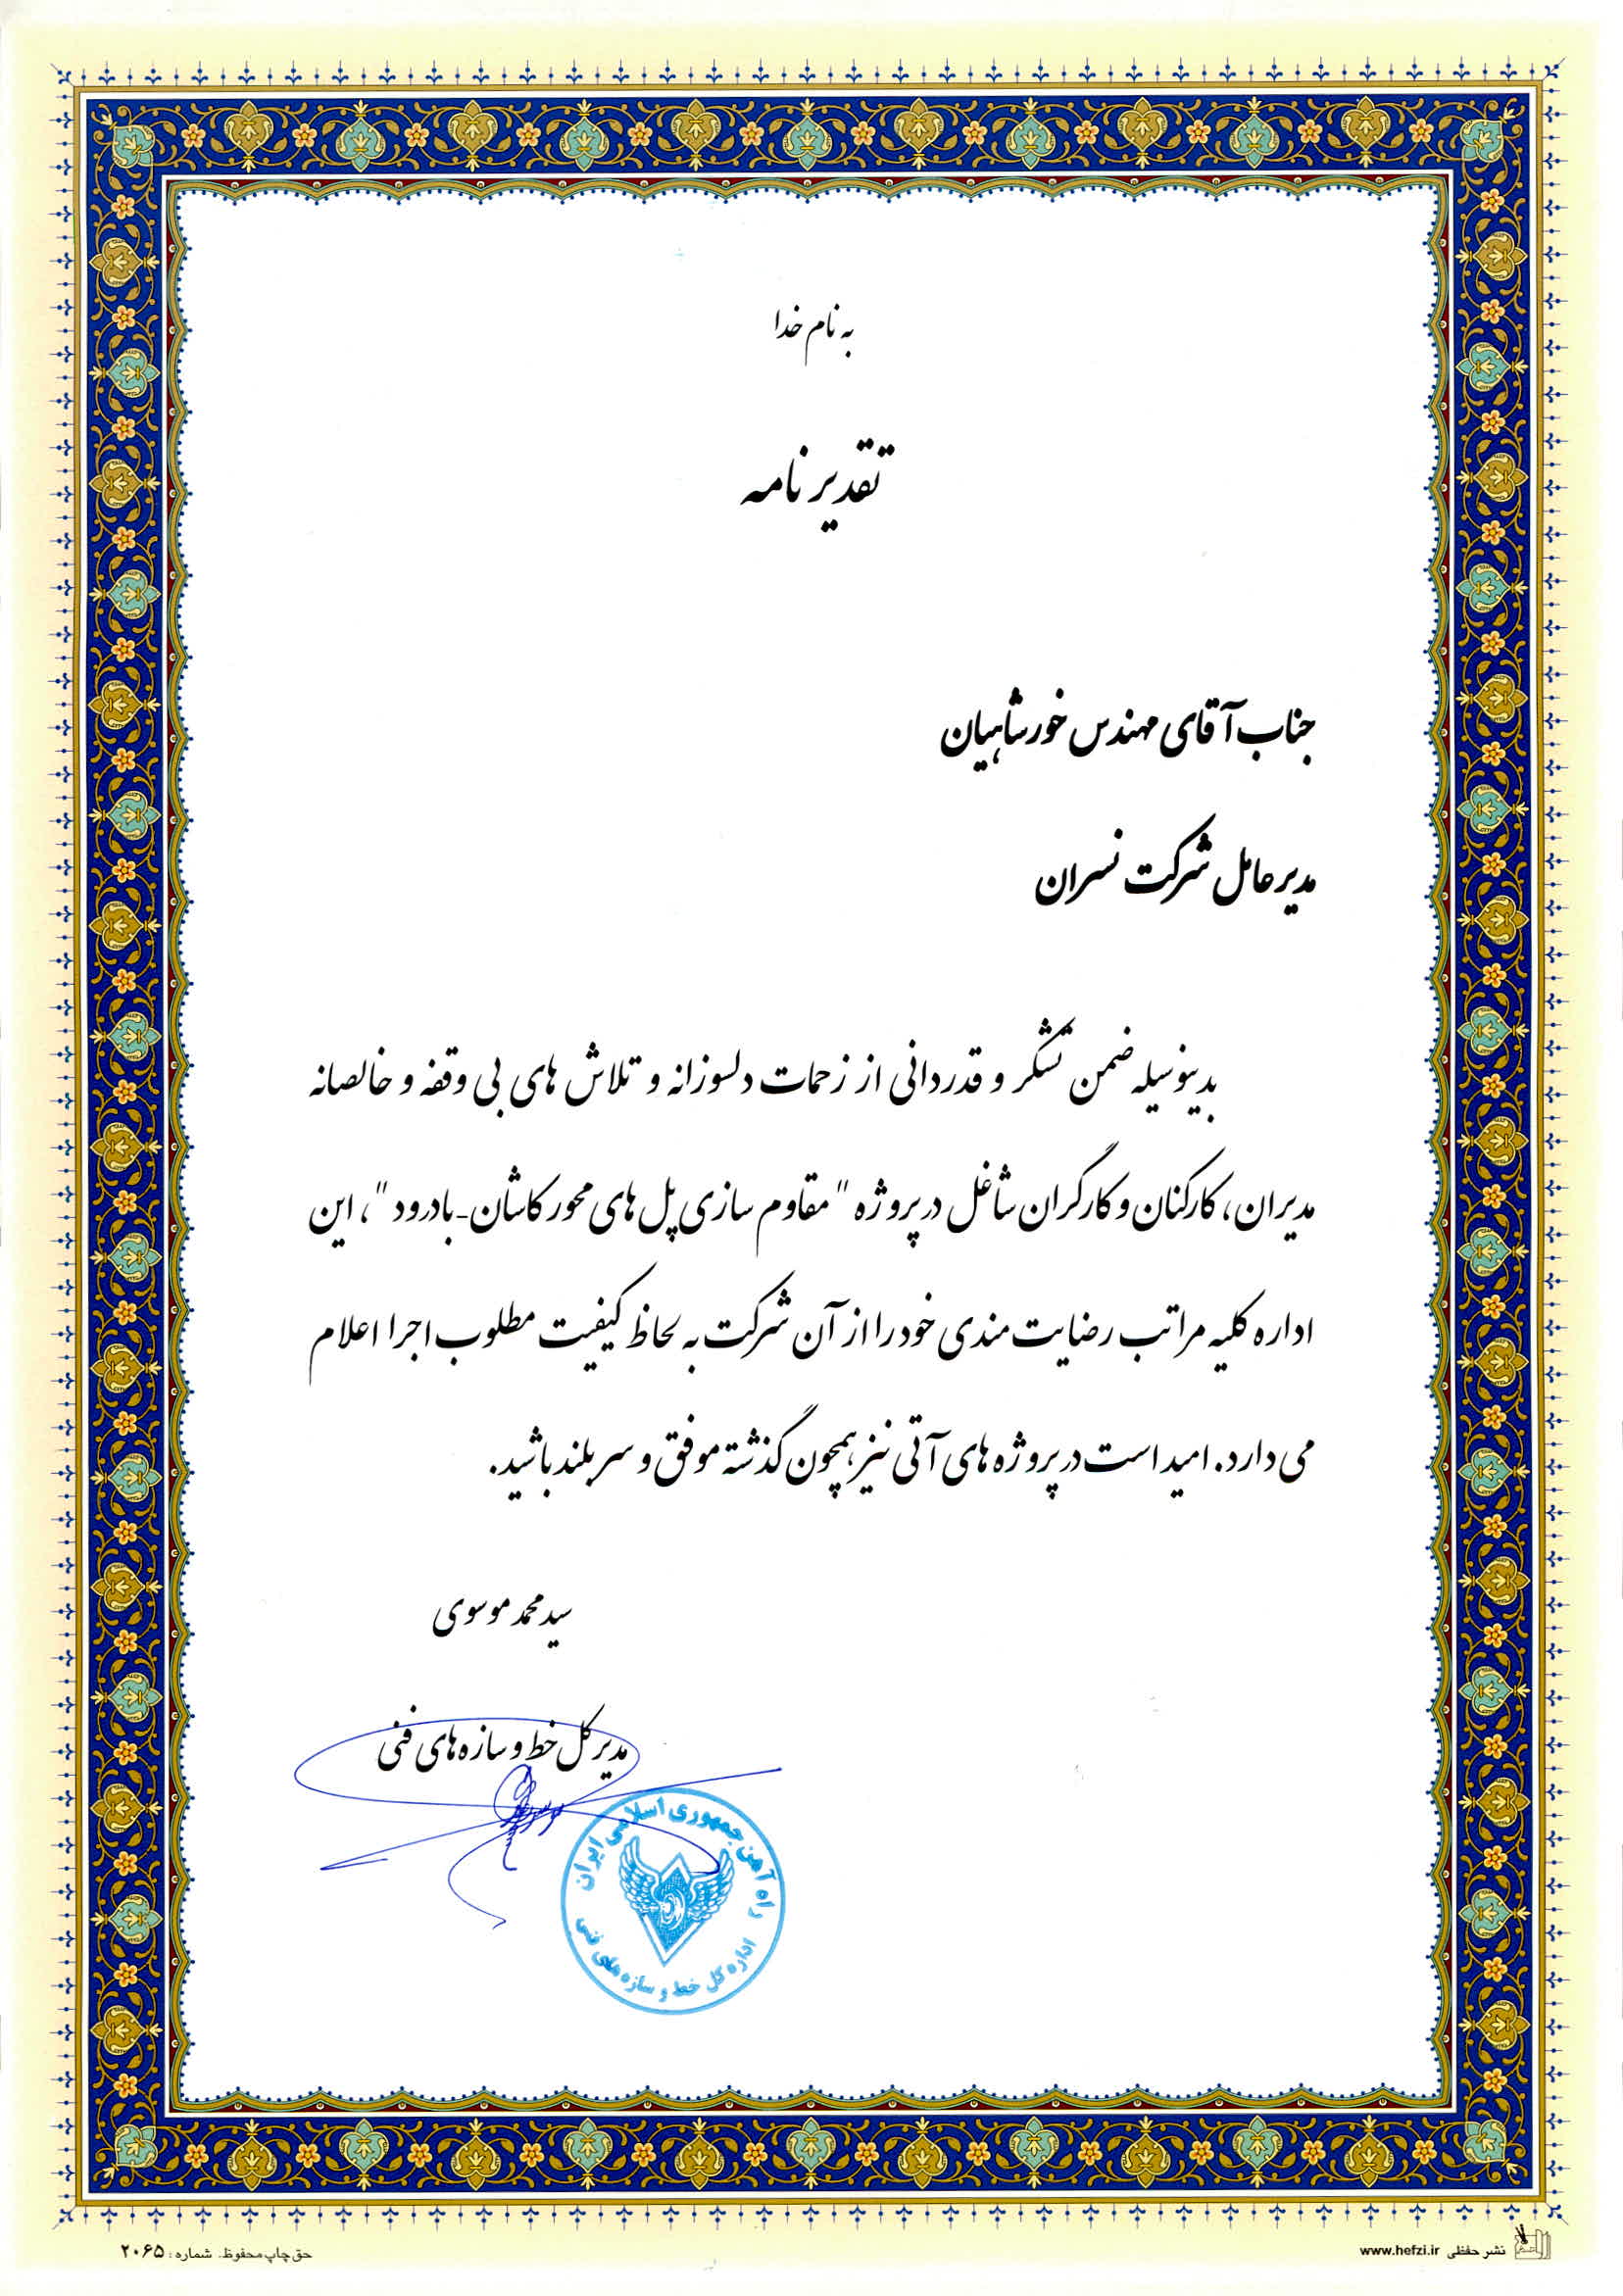 به نام خدا
تقدیر نامه
جناب آقای مهندس خورشاهیان
مدیر عامل شرکت نسران
بدینوسیله ضمن تشکر و قدردانی از زحمات دلسوزانه و تلاش های بی وقفه و خالصانه
مدیران، کارکنان و کارگران شاغل در پروژه "مقاوم سازی پل های محور کاشان-بادرود"، این
اداره کلیه مراتب رضایت مندی خود را از آن شرکت به لحاظ کیفیت مطلوب اجرا اعلام
می دارد. امید است در پروژه های آتی نیز همچون گذشته موفق و سر بلند باشید.
سید محمد موسوی
مدیر کل خط و سازه های فنی
راه آهن جمهوری اسلامی ایران
اداره کل خط و سازه های فنی
نشر حفظی www.hefzi.ir
حق چاپ محفوظ. شماره: ۲۰۶۵